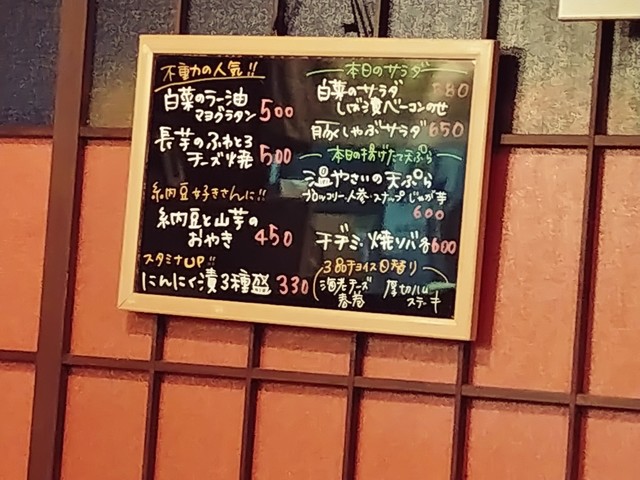 不動の人気!!
白菜のラー油
マヨグラタン 500
長芋のふわとろ
チーズ焼 500
納豆好きさんに!!
納豆と山芋の
おやき 450
スタミナUP!!
にんにく漬3種盛 330
本日のサラダ
白菜のサラダ 580
しば漬ベーコンのせ
豚しゃぶサラダ 650
本日の揚げたて天ぷら
温やさいの天ぷら
ブロッコリー・人参・スナップ・じゃが芋
600
チヂミ・焼ソバ 各600
3品チョイス日替り
海老チーズ
春巻
厚切ハム
ステーキ